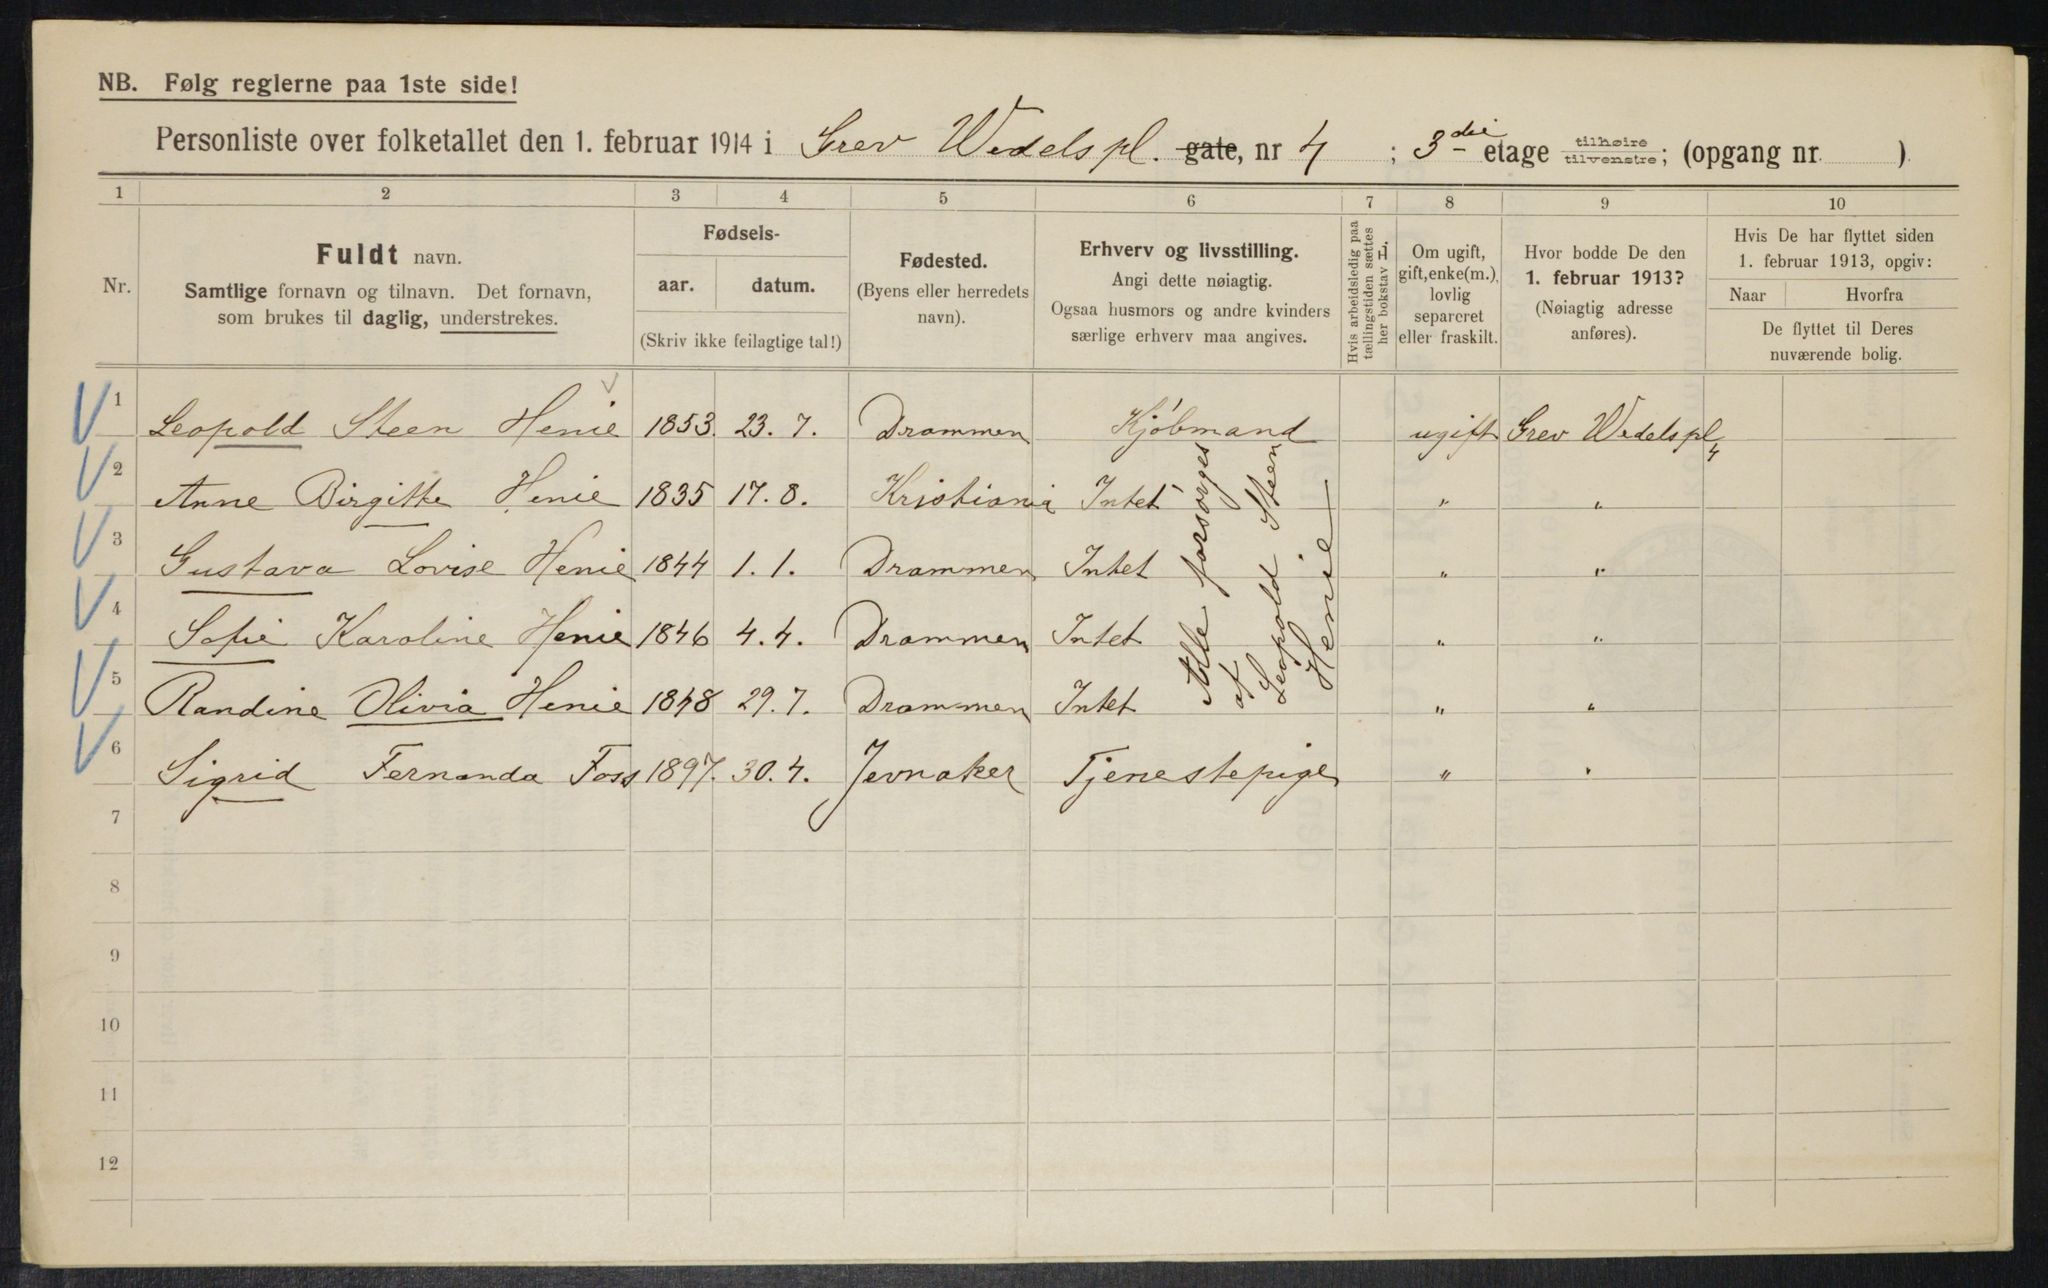 NB. Følg reglerne paa 1ste side!
Personliste over folketallet den 1. februar 1914 i Grev Wedelspl. gate, nr 4 ; 3die etage tilhøire tilvenstre; (opgang nr. )
1 2 3 4 5 6 7 8 9 10
Nr.
Fuldt navn.
Samtlige fornavn og tilnavn. Det fornavn,
som brukes til daglig, understrekes.
Fødsels-
aar. datum.
(Skriv ikke feilagtige tal!)
Fødested.
(Byens eller herredets
navn).
Erhverv og livsstilling.
Angi dette nøiagtig.
Ogsaa husmors og andre kvinders
særlige erhverv maa angives.
Hvis arbeidsledig paa
tællingstiden sættes
her bokstav L.
Om ugift,
gift, enke(m.),
lovlig
separeret
eller fraskilt.
Hvor bodde De den
1. februar 1913?
(Nøiagtig adresse
anføres).
Hvis De har flyttet siden
1. februar 1913, opgiv:
Naar Hvorfra
De flyttet til Deres
nuværende bolig.
1 Leopold Steen Henie 1853. 23. 7. Drammen Kjøbmand ugift Grev Wedelspl 4
2 Anne Birgitte Henie 1835 17. 8. Kristiania Intet " "
3 Gustava Lovise Henie 1844 1. 1. Drammen Intet " "
4 Sofie Karoline Henie 1846 4. 4. Drammen Intet " "
5 Randine Olivia Henie 1848 29. 7. Drammen Intet " "
6 Sigrid Fernanda Foss 1897. 30. 4. Jevnaker Tjenestepige " "
Alle forsørges
af
Leopold Steen
Henie
7
8
9
10
11
12